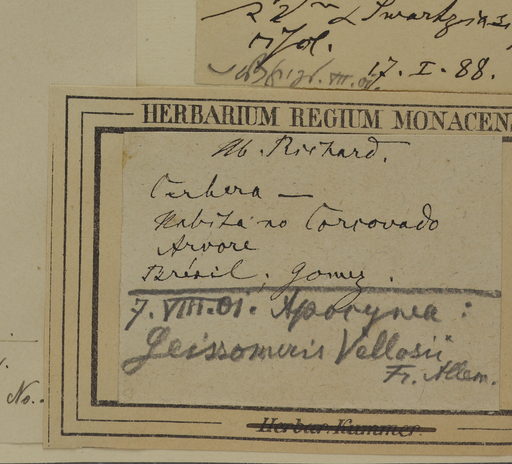 17. I. 88.
HERBARIUM REGIUM MONACENS
Hb. Richard.
Cerbera —
Habita no Corcovado
Arvore
Brésil, Gomez.
7. VIII. 01. Apocynea:
Geissomeris Vellosii
Fr. Allem.
Herbar. Kummer.
No.